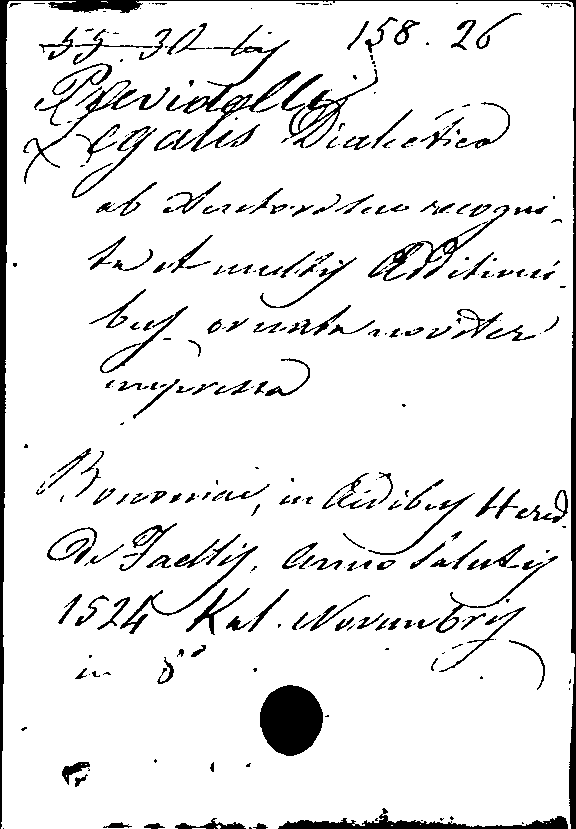 55. 30 158. 26
Previdelli
Legalis Dialectica
ab Auctore suo recogni-
ta et multis Additioni-
bus ornata noviter
impressa
Bononiae, in Aedibus Hered.
de Faellis, Anno Salutis
1524 Kal. Novembris
in 8°